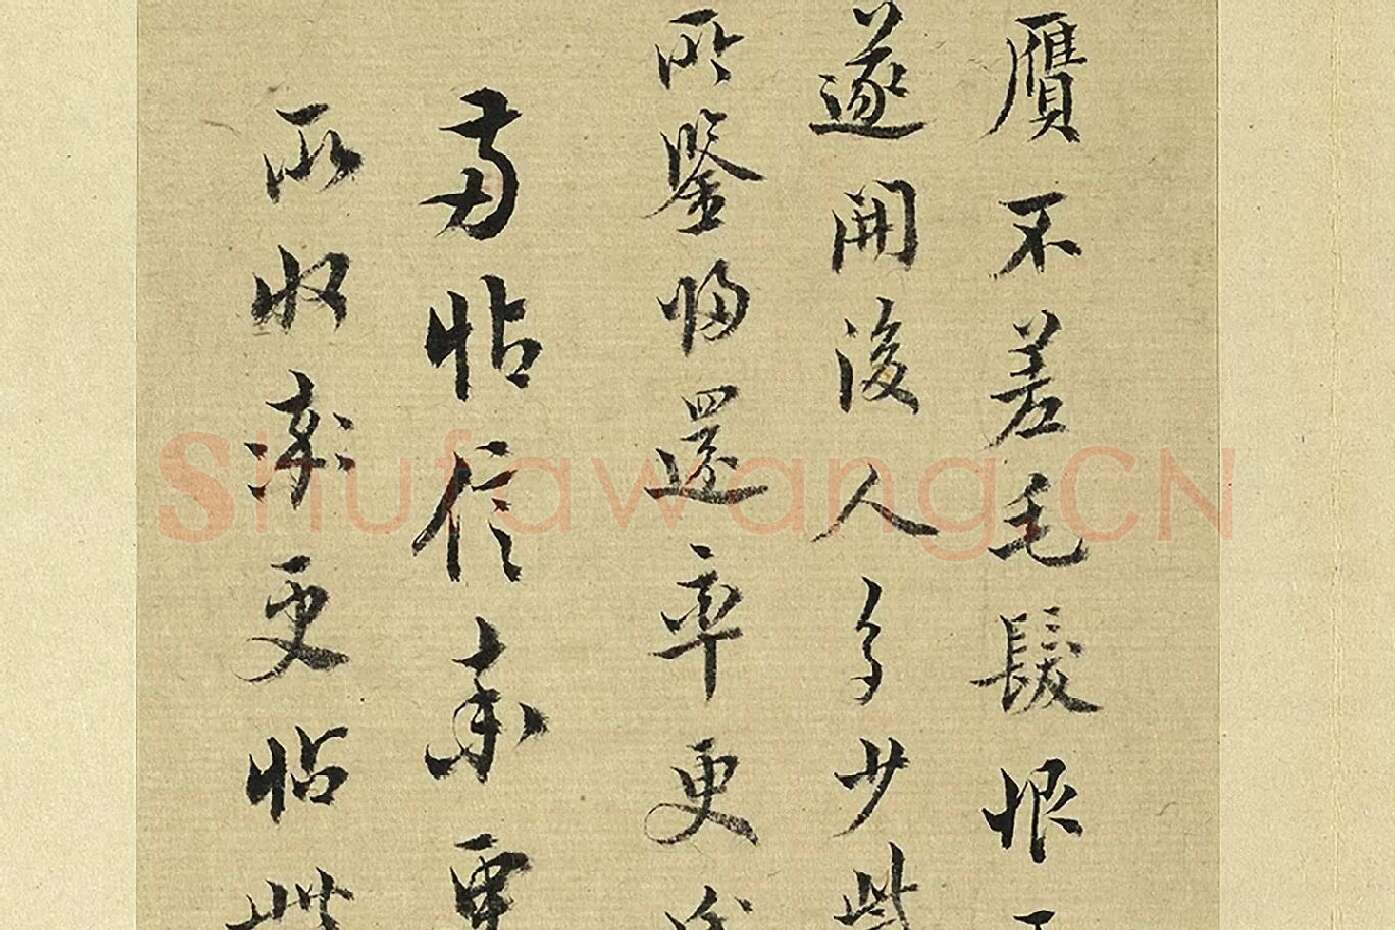 贋不差毛髮恨
遂開後人多少
所鑒歸還率更
兩帖信奉更
所收率更帖
Shufawang.CN